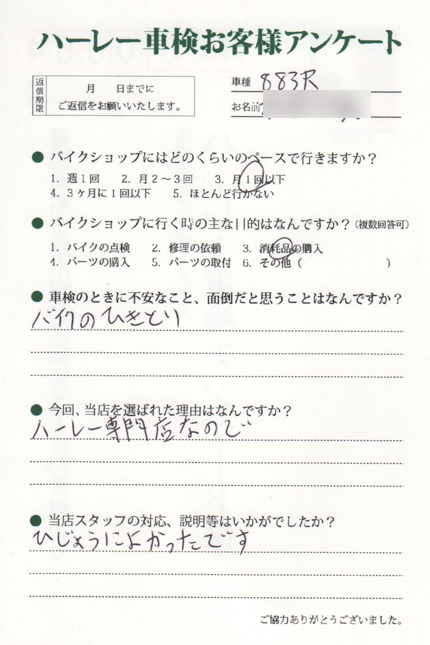 ハーレー車検お客様アンケート
返信期限
月　日までに
ご返信をお願いいたします。
車種 883R
お名前
● バイクショップにはどのくらいのペースで行きますか？
1. 週1回　2. 月2～3回　3. 月1回以下
4. 3ヶ月に1回以下　5. ほとんど行かない
● バイクショップに行く時の主な目的はなんですか？（複数回答可）
1. バイクの点検　2. 修理の依頼　3. 消耗品の購入
4. パーツの購入　5. パーツの取付　6. その他（　　　）
● 車検のときに不安なこと、面倒だと思うことはなんですか？
バイクのひきとり
● 今回、当店を選ばれた理由はなんですか？
ハーレー専門店なので
● 当店スタッフの対応、説明等はいかがでしたか？
ひじょうによかったです
ご協力ありがとうございました。